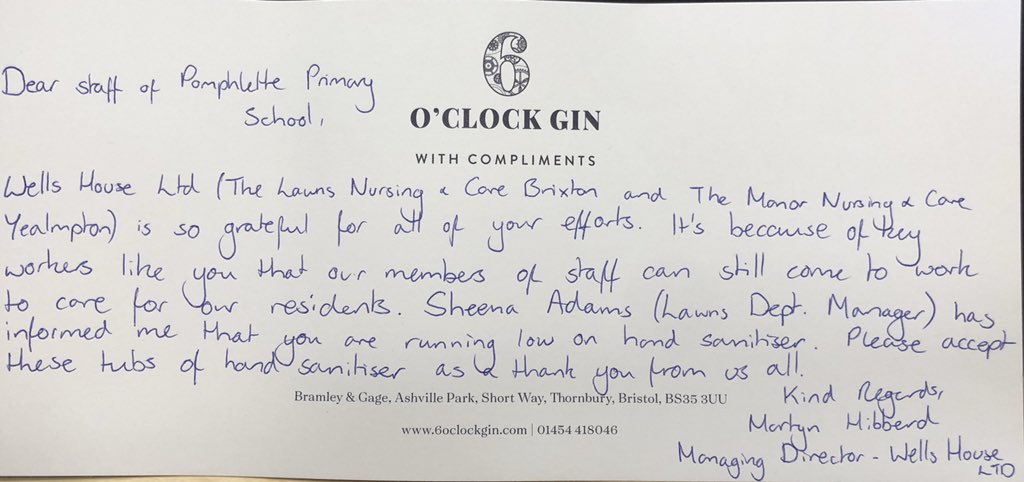 6
O'CLOCK GIN
WITH COMPLIMENTS
Dear staff of Pomphlette Primary
School,
Wells House Ltd (The Lawns Nursing & Care Brixton and The Manor Nursing & Care
Yealmpton) is so grateful for all of your efforts. It's beccause of key
workers like you that our members of staff can still come to work
to care for our residents. Sheena Adams (Lawns Dept. Manager) has
informed me that you are running low on hand sanitiser. Please accept
these tubs of hand sanitiser as a thank you from us all.
Kind Regards,
Martyn Hibberd
Managing Director - Wells House
LTD
Bramley & Gage, Ashville Park, Short Way, Thornbury, Bristol, BS35 3UU
www.6oclockgin.com | 01454 418046